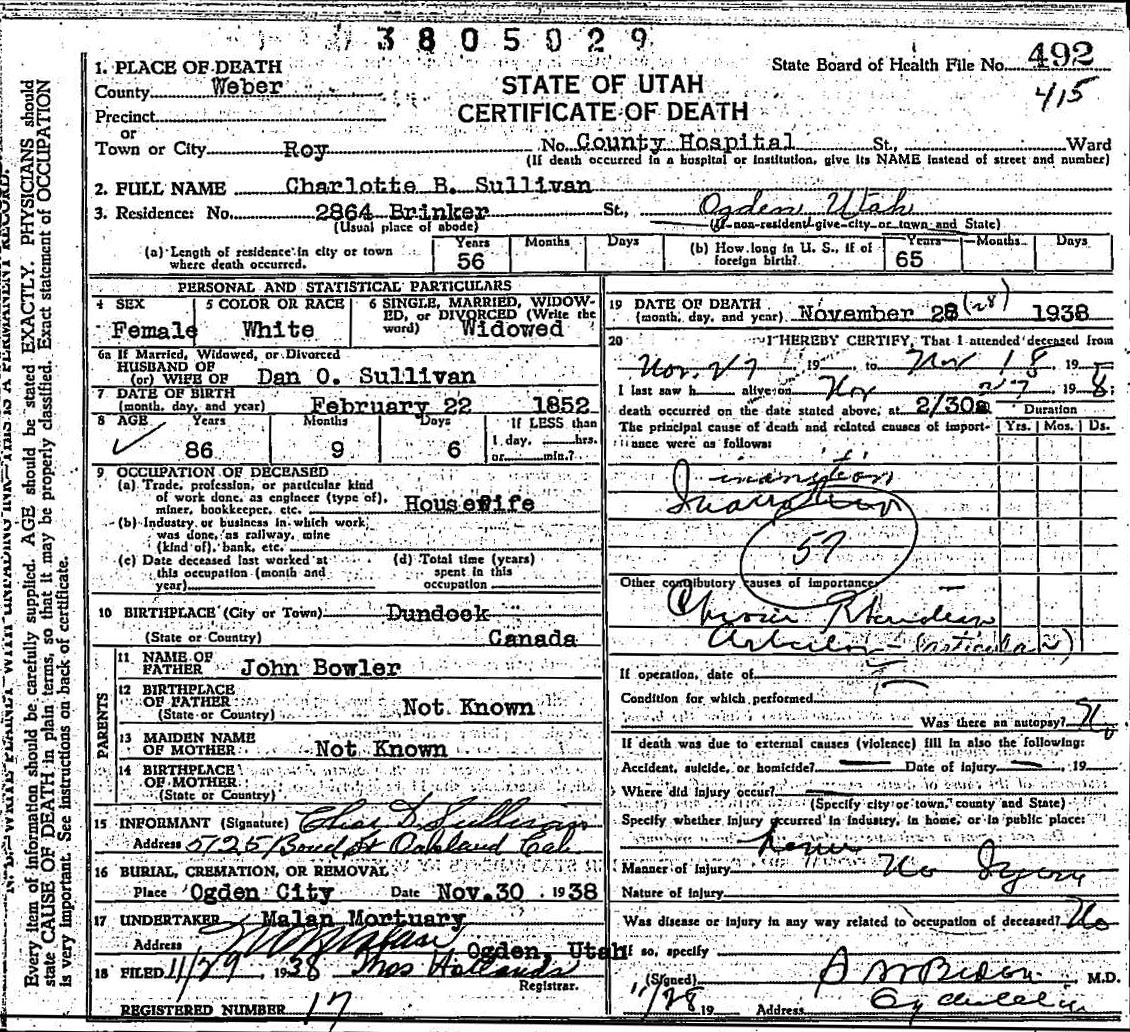 3805029
State Board of Health File No. 492
415
STATE OF UTAH
CERTIFICATE OF DEATH
1. PLACE OF DEATH
County Weber
Precinct
or
Town or City Roy No. County Hospital St., Ward
(If death occurred in a hospital or institution, give its NAME instead of street and number)
2. FULL NAME Charlotte B. Sullivan
3. Residence: No. 2864 Brinker St., Ogden Utah
(Usual place of abode) (If non-resident give city or town and State)
(a) Length of residence in city or town where death occurred. Years 56 Months Days
(b) How long in U. S., if of foreign birth? Years 65 Months Days
PERSONAL AND STATISTICAL PARTICULARS
4 SEX Female
5 COLOR OR RACE White
6 SINGLE, MARRIED, WIDOWED, or DIVORCED (Write the word) Widowed
6a If Married, Widowed, or Divorced
HUSBAND OF
(or) WIFE OF Dan O. Sullivan
7 DATE OF BIRTH
(month, day, and year) February 22 1852
8 AGE Years 86 Months 9 Days 6 If LESS than 1 day, hrs. or min.?
9 OCCUPATION OF DECEASED
(a) Trade, profession, or particular kind of work done, as engineer (type of), miner, bookkeeper, etc. Housewife
(b) Industry or business in which work was done, as railway, mine (kind of), bank, etc.
(c) Date deceased last worked at this occupation (month and year)
(d) Total time (years) spent in this occupation
10 BIRTHPLACE (City or Town) Dundock
(State or Country) Canada
PARENTS
11 NAME OF FATHER John Bowler
12 BIRTHPLACE OF FATHER (State or Country) Not Known
13 MAIDEN NAME OF MOTHER Not Known
14 BIRTHPLACE OF MOTHER (State or Country)
15 INFORMANT (Signature) Chas D Sullivan
Address 5125 Bond St Oakland Cal.
16 BURIAL, CREMATION, OR REMOVAL
Place Ogden City Date Nov. 30 1938
17 UNDERTAKER Malan Mortuary
Address Ogden, Utah
18 FILED 11/29 1938 Thos Hollands
Registrar.
REGISTERED NUMBER 17
19 DATE OF DEATH
(month, day, and year) November 28 (28) 1938
20 I HEREBY CERTIFY, That I attended deceased from
Nov. 27 19 to Nov 18 19
I last saw h alive on Nov 27, 198;
death occurred on the date stated above, at 2/30a
Duration
The principal cause of death and related causes of importance were as follows: Yrs. Mos. Ds.
inanition
Inanition
57
Other contributory causes of importance:
Chronic
(articular)
If operation, date of
Condition for which performed
Was there an autopsy? No
If death was due to external causes (violence) fill in also the following:
Accident, suicide, or homicide? Date of injury , 19
Where did injury occur?
(Specify city or town, county and State)
Specify whether injury occurred in industry, in home, or in public place:
Manner of injury No Injury
Nature of injury
Was disease or injury in any way related to occupation of deceased? No
If so, specify
(Signed) M.D.
11/28 19 Address
Every item of information should be carefully supplied. AGE should be stated EXACTLY. PHYSICIANS should
state CAUSE OF DEATH in plain terms, so that it may be properly classified. Exact statement of OCCUPATION
is very important. See instructions on back of certificate.